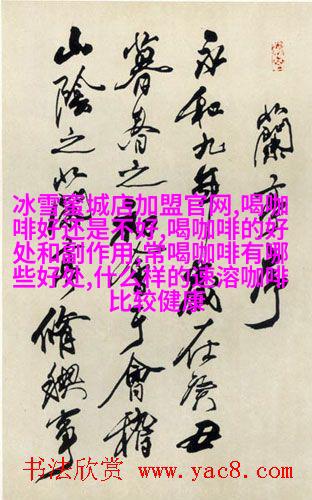 蘭亭序
永和九年歲在癸丑
暮春之初會于會稽
山陰之蘭亭脩禊事
冰雪蜜城店加盟官网,喝咖
啡好还是不好,喝咖啡的好
处和副作用-常喝咖啡有哪
些好处,什么样的速溶咖啡
比较健康
书法欣赏 www.yac8.com